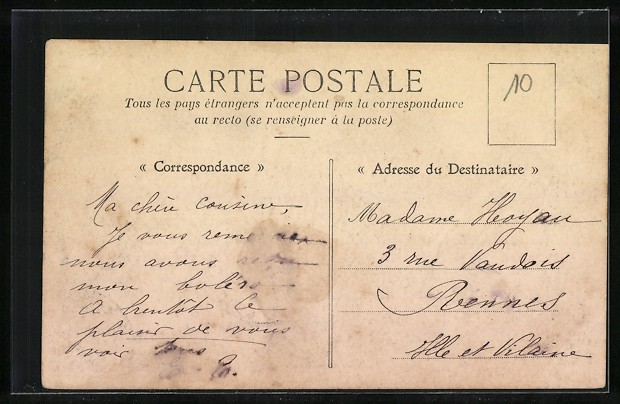 10
CARTE POSTALE
Tous les pays étrangers n'acceptent pas la correspondance
au recto (se renseigner à la poste)
« Correspondance »
Ma chère cousine,
Je vous
nous avons
mon boléro
A bientôt le
plaisir de vous
voir
« Adresse du Destinataire »
Madame Hoyau
3 rue Vaudois
Rennes
Ille et Vilaine